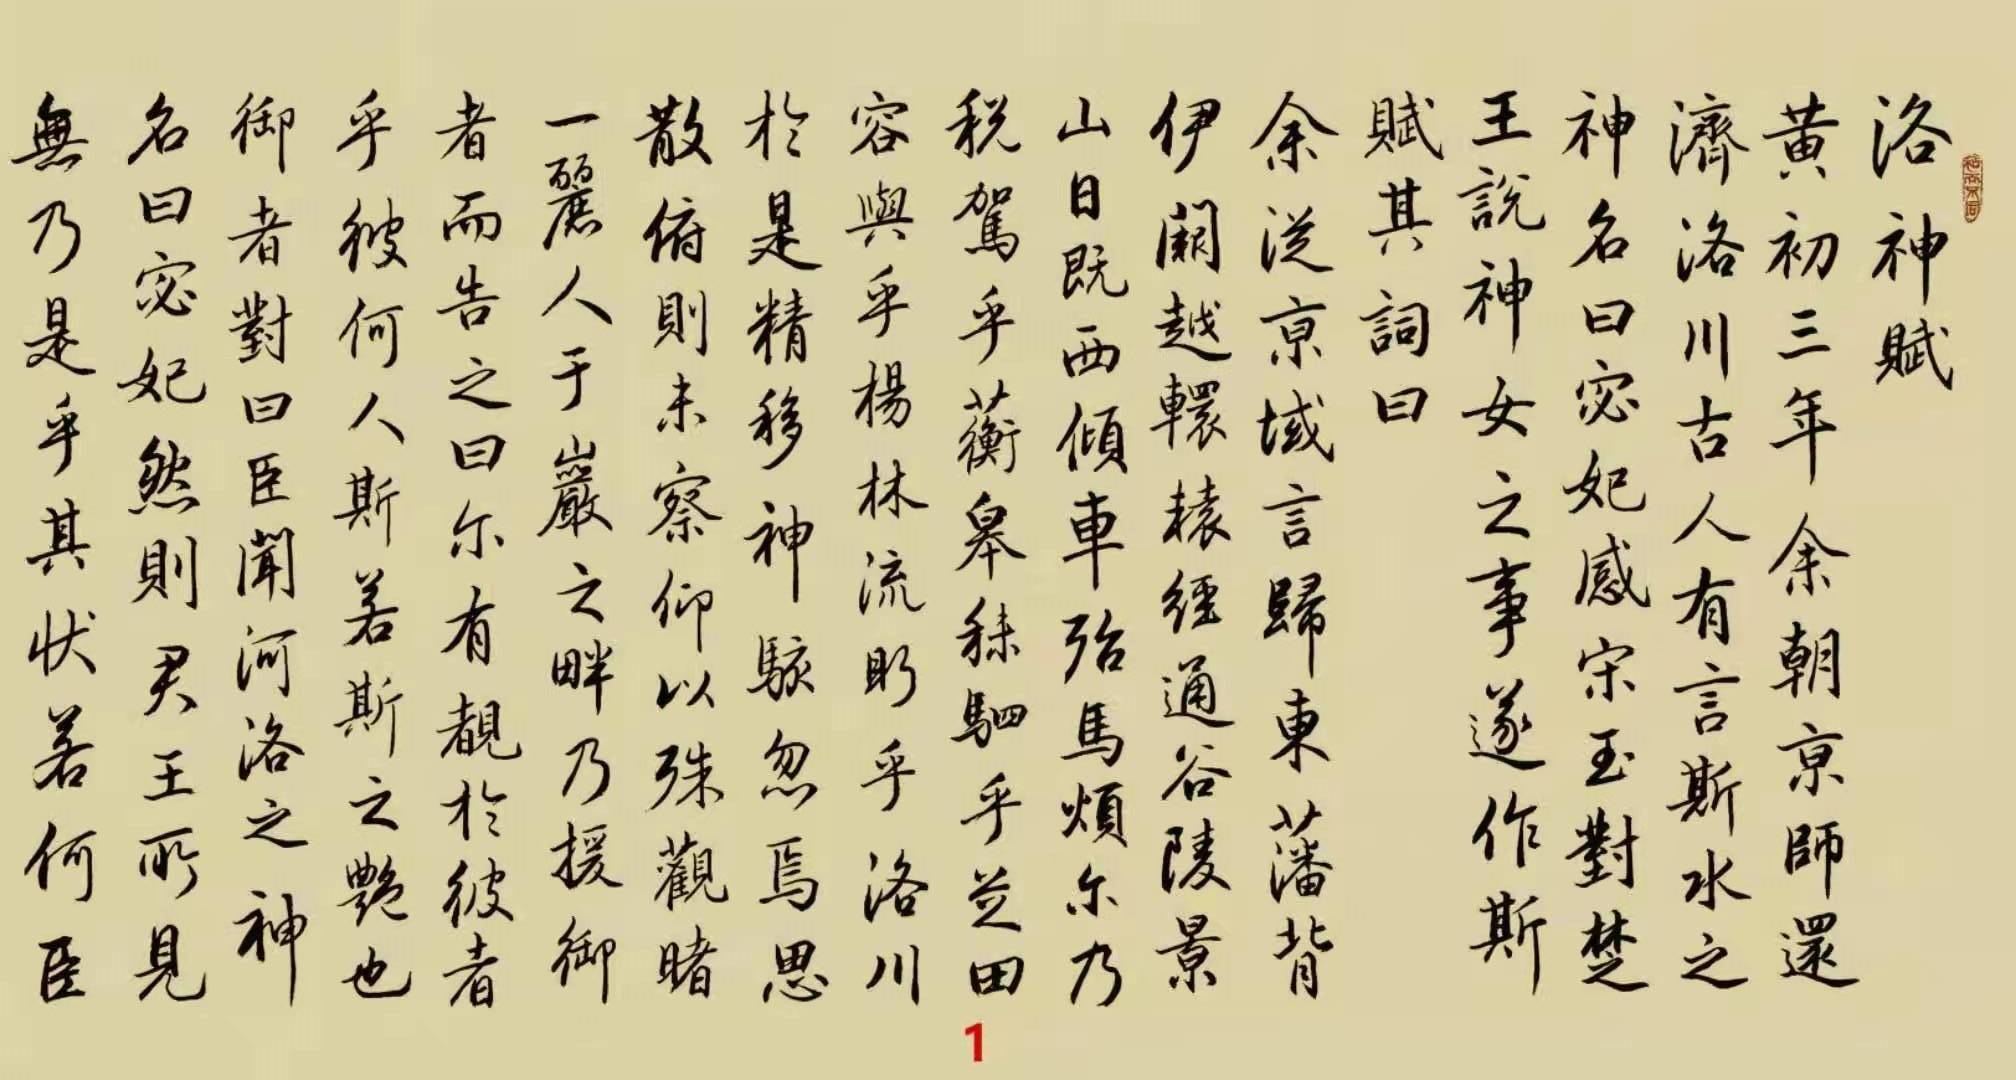 洛神賦
黄初三年余朝京師還
濟洛川古人有言斯水之
神名曰宓妃感宋玉對楚
王說神女之事遂作斯
賦其詞曰
余從京域言歸東藩背
伊闕越轘轅經通谷陵景
山日既西傾車殆馬煩尔乃
税駕乎蘅皋秣駟乎芝田
容與乎楊林流眄乎洛川
於是精移神駭忽焉思
散俯則未察仰以殊觀睹
一麗人于巖之畔乃援御
者而告之曰尔有覩於彼者
乎彼何人斯若斯之艷也
御者對曰臣聞河洛之神
名曰宓妃然則君王所見
無乃是乎其狀若何臣
1